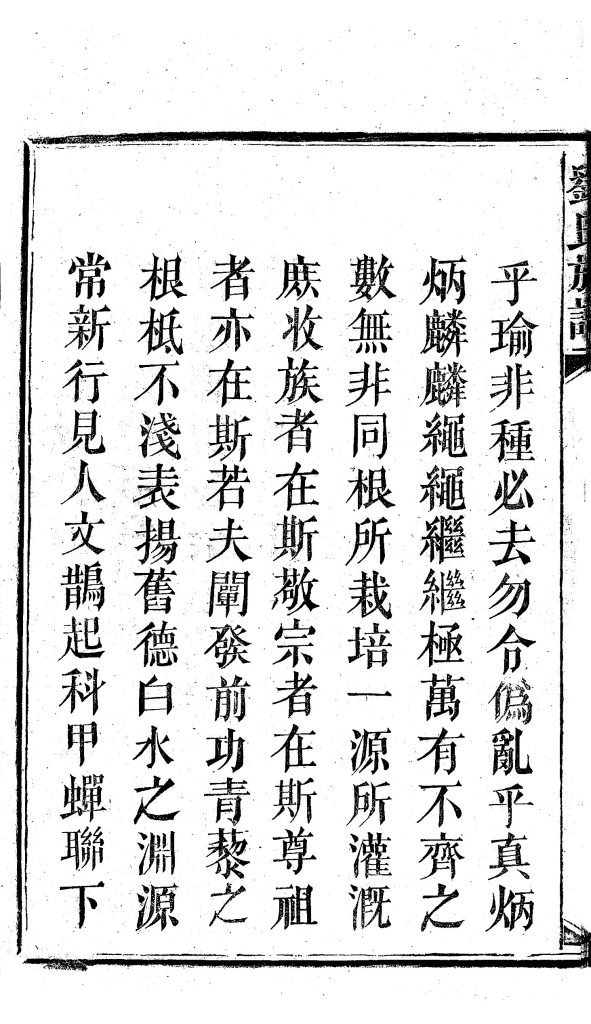 劉氏族譜
乎瑜非種必去勿令僞亂乎真炳
炳麟麟繩繩繼繼極萬有不齊之
數無非同根所栽培一源所灌溉
庶收族者在斯敬宗者在斯尊祖
者亦在斯若夫闡發前功青藜之
根柢不淺表揚舊德白水之淵源
常新行見人文鵲起科甲蟬聯下